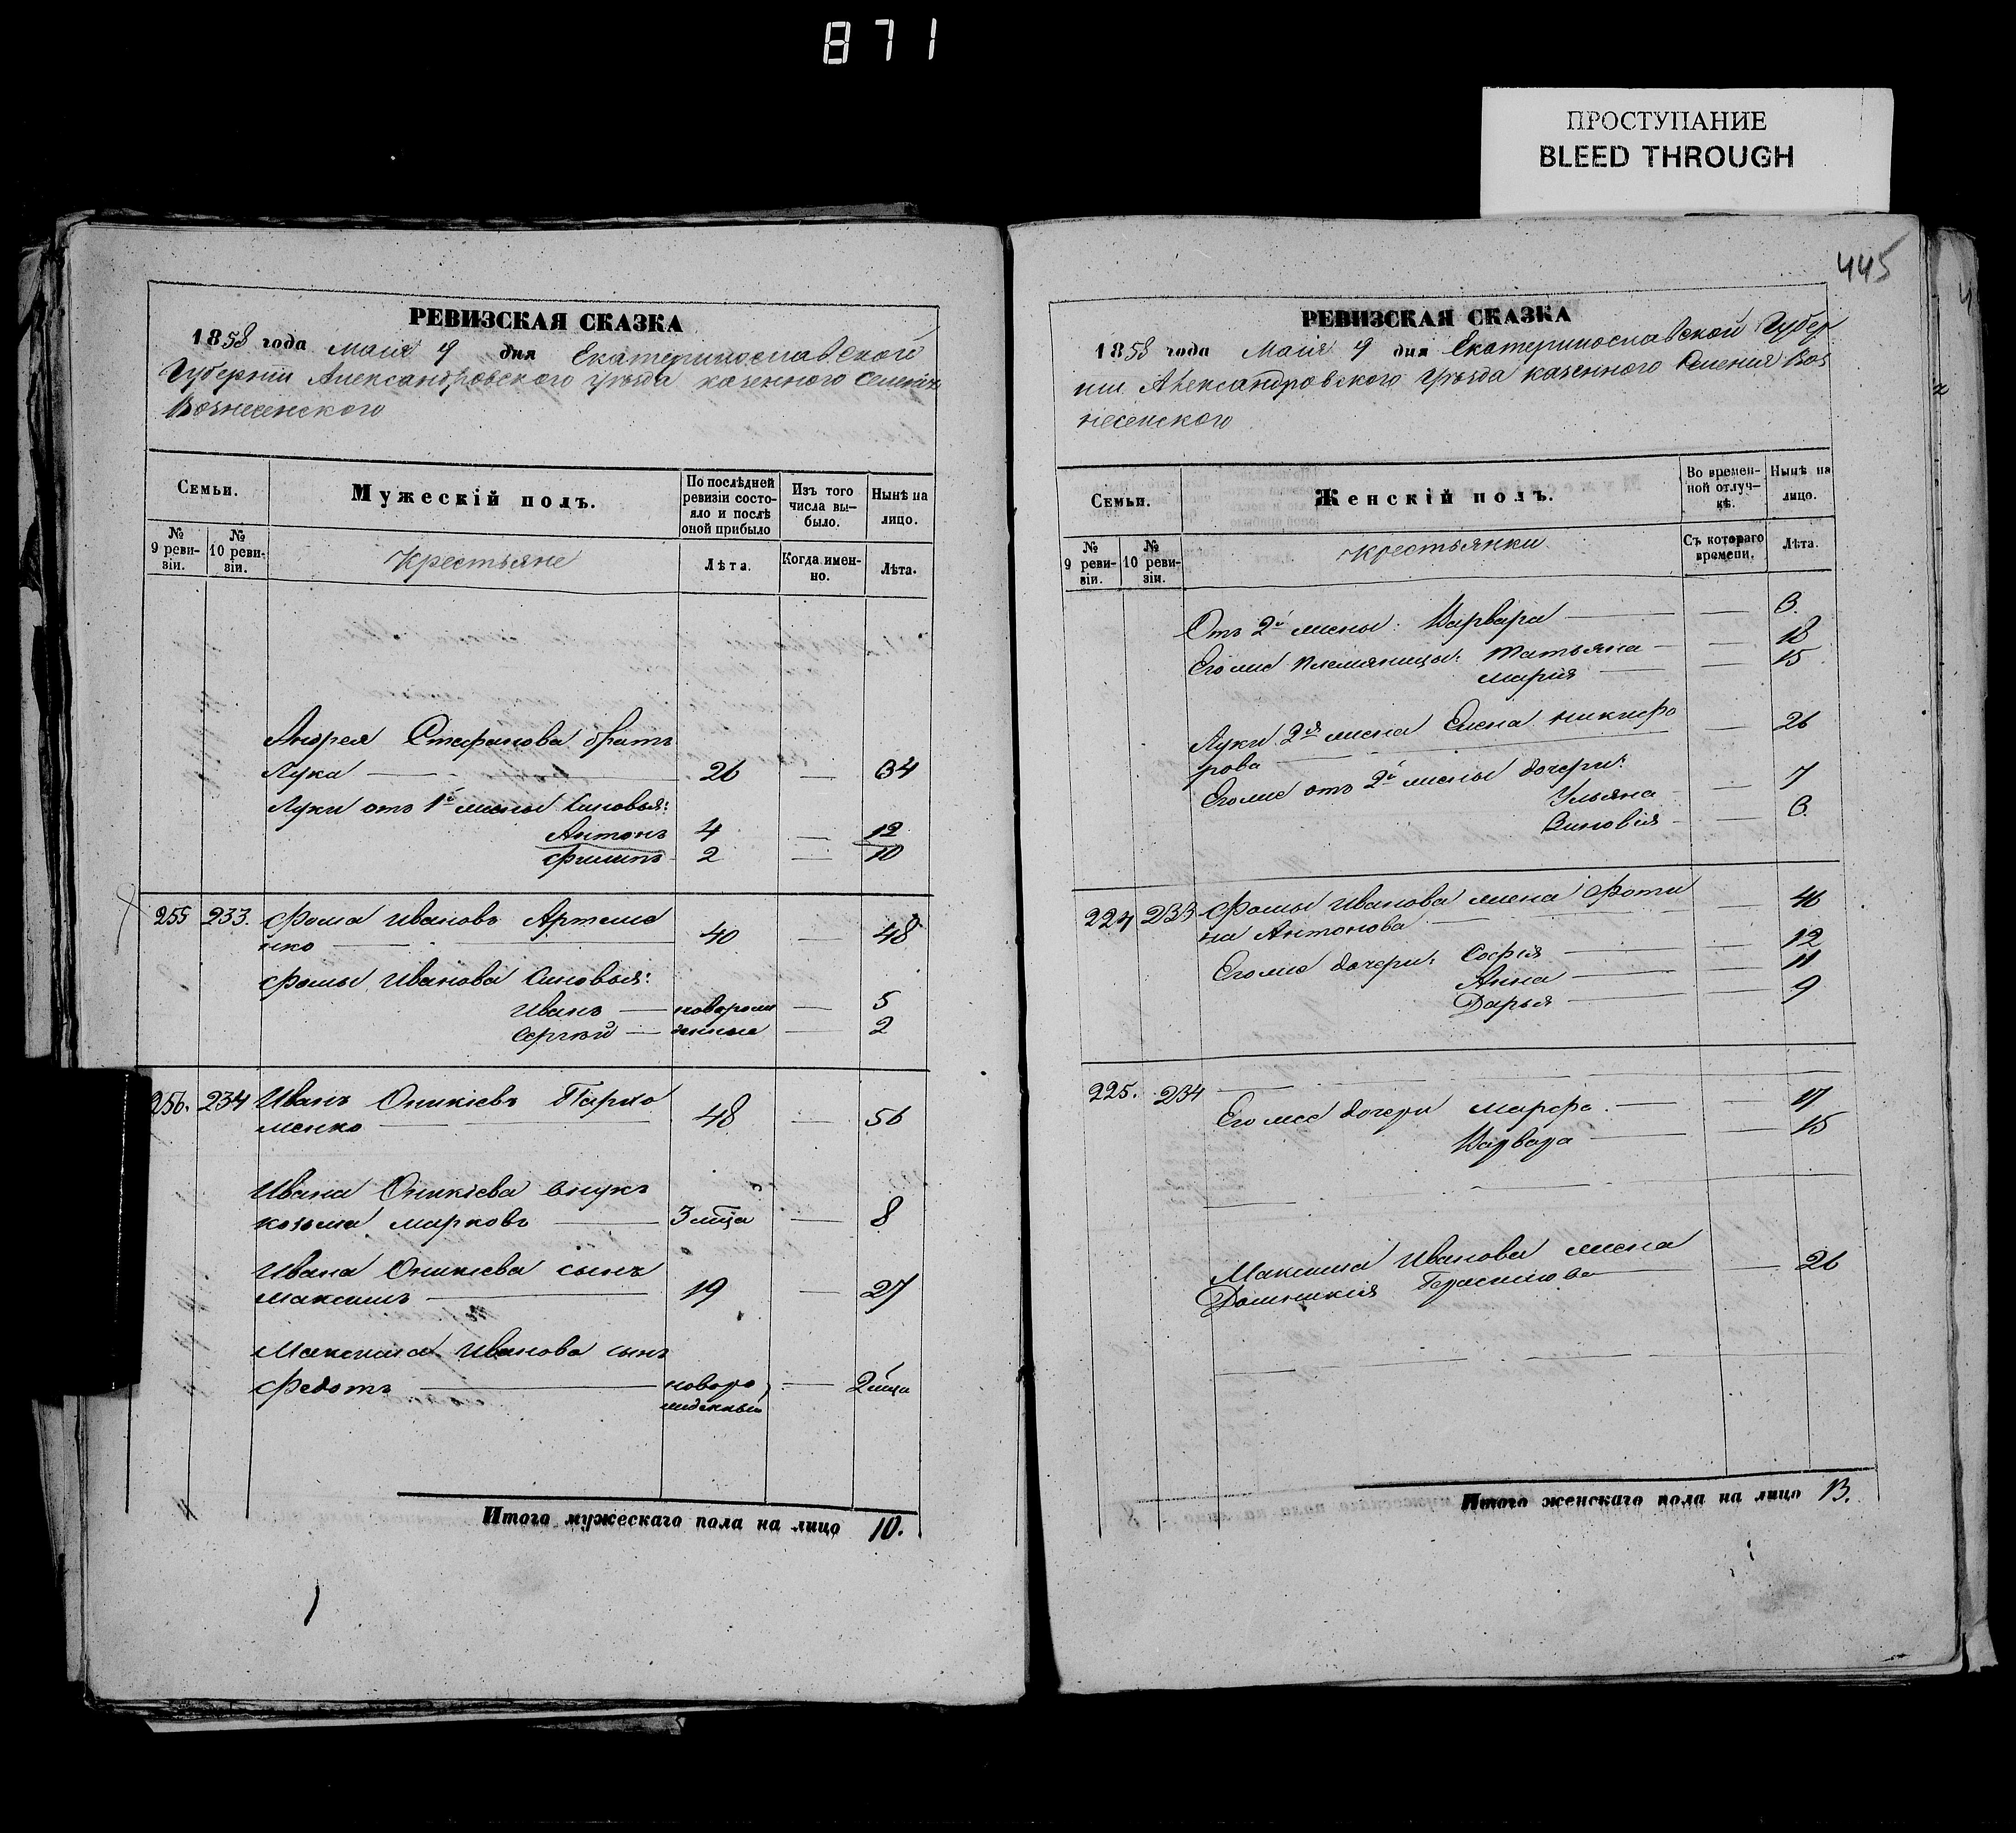 871
ПРОСТУПАНИЕ
BLEED THROUGH
РЕВИЗСКАЯ СКАЗКА
1858 года Маія 9 дня Екатеринославской
Губерніи Александровского уѣзда казенного Селенія
Вознесенского
Семьи.
Мужескій полъ.
По послѣдней ревизіи состо-
яло и послѣ
оной прибыло
Изъ того
числа вы-
было.
Нынѣ на
лицо.
№
9 реви-
зіи.
№
10 реви-
зіи.
Крестьяне
Лѣта.
Когда имен-
но.
Лѣта.
Андрея Стефанова братъ
Лука — 26 — 34
Луки отъ 1й жены Сыновья:
Антонъ 4 — 12
Филипъ 2 — 10
255 233. Фома Ивановъ Артеме
нко — 40 — 48
Фомы Иванова Сыновья:
Иванъ — наворож — 5
Сергѣй — денные — 2
256. 234 Иванъ Оникіевъ Пархо
менко — 48 — 56
Ивана Оникіева внукъ
козьма марковъ — 3 мца — 8
Ивана Оникіева сынъ
максимъ — 19 — 27
Максима Иванова сынъ
Федотъ — новоро — 2 мца
жденный
Итого мужескаго пола на лицо 10.
445
РЕВИЗСКАЯ СКАЗКА
1858 года Маія 9 дня Екатеринославской Губер
ніи Александровского Уѣзда казенного Селенія Воз
несенского
Семьи.
Женскій полъ.
Во времен-
ной отлуч-
кѣ.
Нынѣ на
лицо.
№
9 реви-
зіи.
№
10 реви-
зіи.
крестьянки
Съ котораго
времени.
Лѣта.
Отъ 2й жены: Варвара — 3.
Его же племяницы: Татьяна — 18
марія — 15
Луки 2я жена Елена никифо
рова — 26
Его же отъ 2й жены дочери:
Ульяна — 7
Зиновія — 3.
224 233 Фомы Иванова жена Фоти
на Антонова — 46
Его же дочери: Софія — 12
Анна — 11
Дарья — 9
225. 234 —
Его же дочери марфа — 17
Варвара — 15
Максима Иванова жена
Домникия Герасимова — 26
Итого женскаго пола на лицо 13.